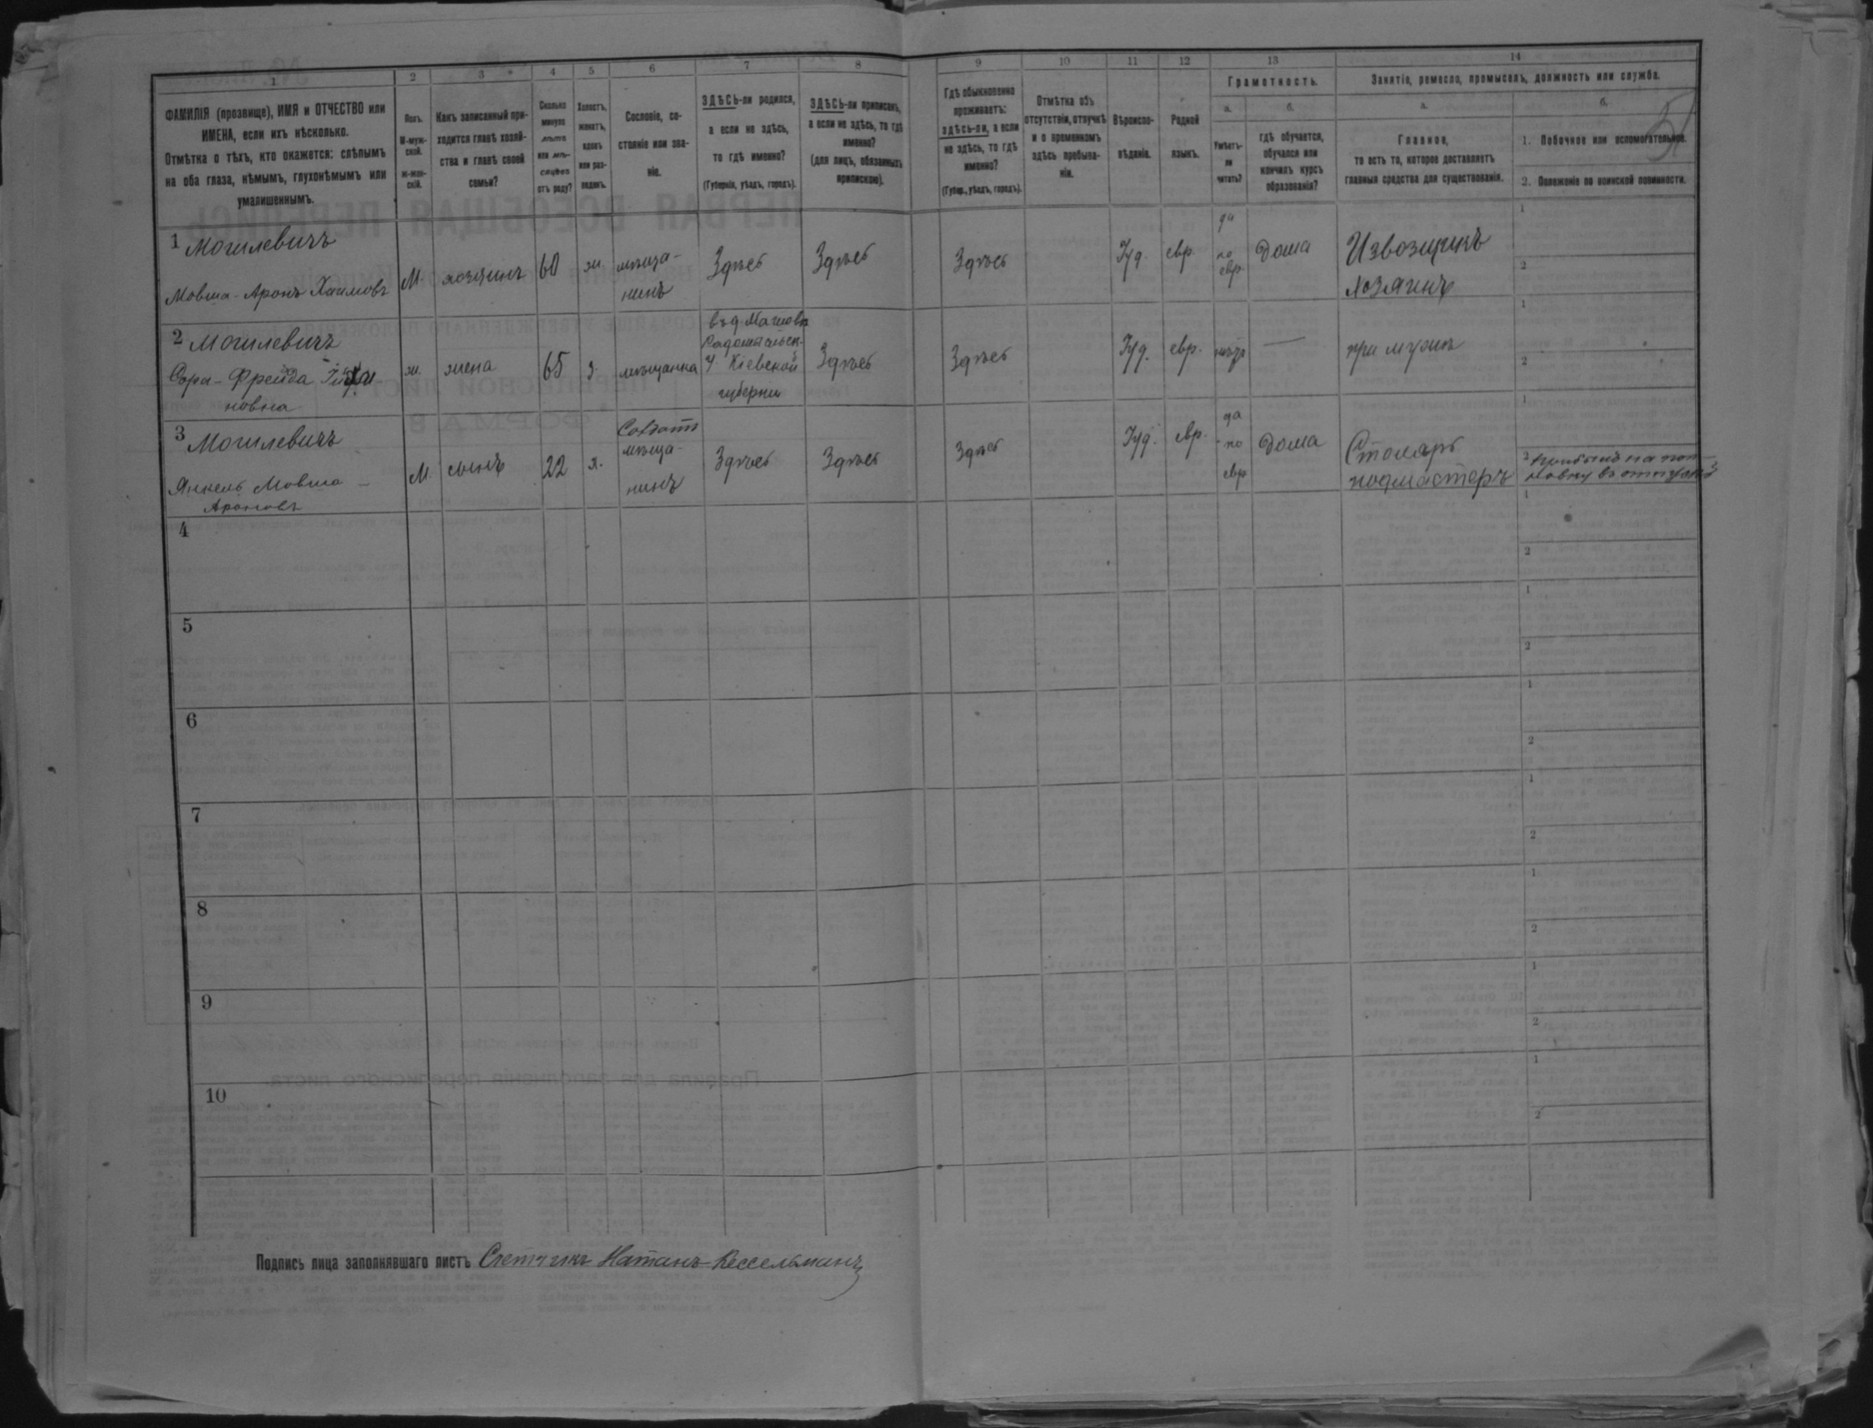 1 2 3 4 5 6 7 8 9 10 11 12 13 14
ФАМИЛІЯ (прозвище), ИМЯ и ОТЧЕСТВО или
ИМЕНА, если ихъ нѣсколько.
Отмѣтка о тѣхъ, кто окажется: слѣпымъ
на оба глаза, нѣмымъ, глухонѣмымъ или
умалишеннымъ.
Полъ.
М-муж-
ской.
ж-жен-
скій.
Какъ записанный при-
ходится главѣ хозяй-
ства и главѣ своей
семьи?
Сколько
минуло
лѣтъ
или мѣ-
сяцевъ
отъ роду?
Холостъ,
женатъ,
вдовъ
или раз-
веденъ.
Сословіе, со-
стояніе или зва-
ніе.
ЗДѢСЬ-ли родился,
а если не здѣсь,
то гдѣ именно?
(Губернія, уѣздъ, городъ).
ЗДѢСЬ-ли приписанъ,
а если не здѣсь, то гдѣ
именно?
(для лицъ, обязанныхъ
припискою).
Гдѣ обыкновенно
проживаетъ:
здѣсь-ли, а если
не здѣсь, то гдѣ
именно?
(Губер., уѣздъ, городъ).
Отмѣтка объ
отсутствіи, отлучкѣ
и о временномъ
здѣсь пребыва-
ніи.
Вѣроиспо-
вѣданіе.
Родной
языкъ.
Грамотность.
а.
Умѣетъ-
ли
читать?
б.
гдѣ обучается,
обучался или
кончилъ курсъ
образованія?
Занятіе, ремесло, промыселъ, должность или служба.
а.
Главное,
то есть то, которое доставляетъ
главныя средства для существованія.
б.
1. Побочное или вспомогательное.
2. Положеніе по воинской повинности.
51
1 Могилевичъ
Мовша-Аронъ Хаимовъ
М.
хозяинъ
60
ж.
мѣща-
нинъ
Здѣсь
Здѣсь
Здѣсь
Іуд.
евр.
да
по
евр.
Дома
Извозчикъ
хозяинъ
1
2
2 Могилевичъ
Сора-Фрейда
новна
ж.
жена
65
з.
мѣщанка
Радомысльск.
у. Кіевской
губерніи
Здѣсь
Здѣсь
Іуд.
евр.
нѣтъ
—
при мужѣ
1
2
3 Могилевичъ
Янкель Мовша-
Ароновъ
М.
сынъ
22
х.
Солдатъ
мѣща-
нинъ
Здѣсь
Здѣсь
Здѣсь
Іуд.
евр.
да
по
евр
Дома
Столяръ
подмастеръ
1
2
4
1
2
5
1
2
6
1
2
7
1
2
8
1
2
9
1
2
10
1
2
Подпись лица заполнявшаго листъ Счетчикъ Натанъ Кессельманъ